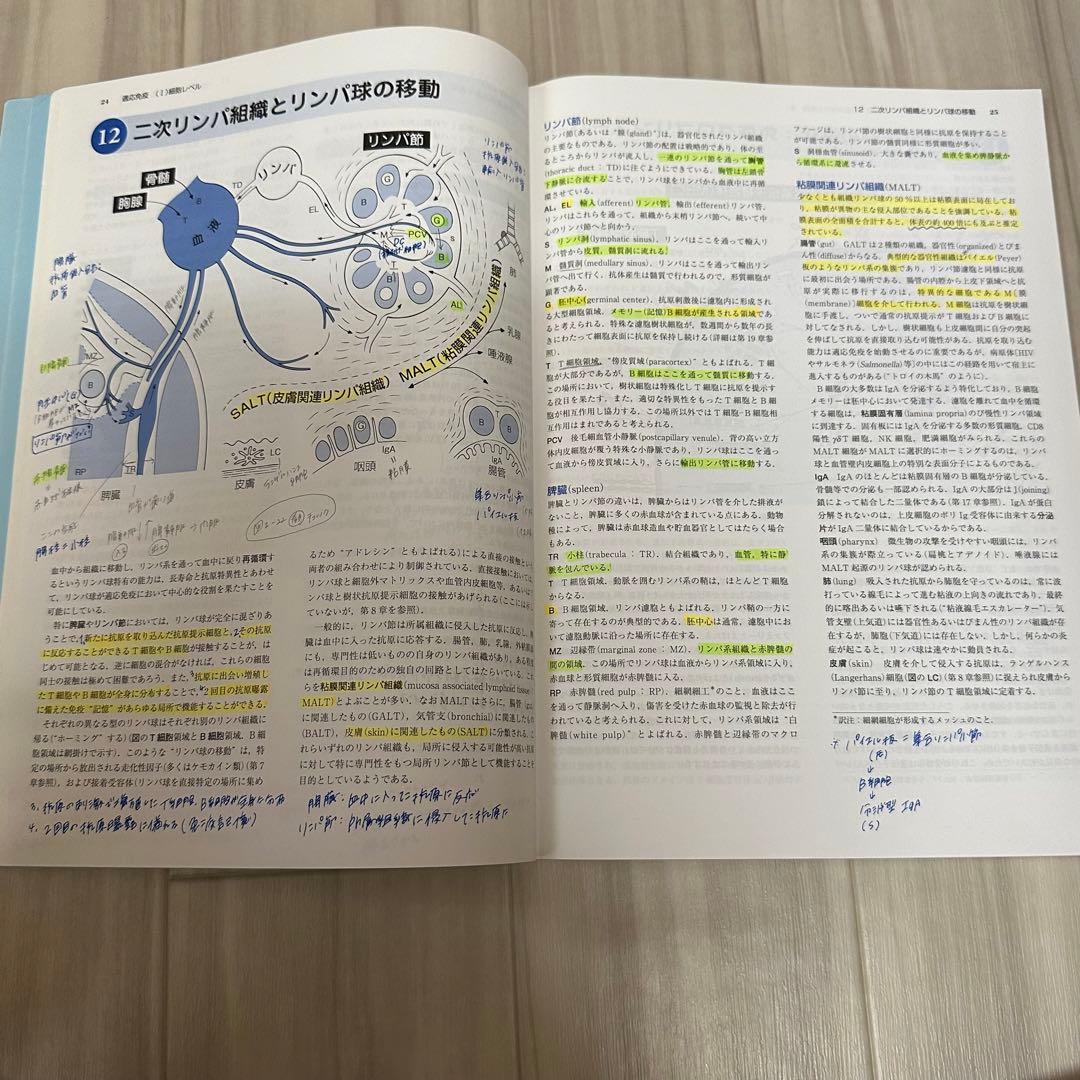 24 適応免疫 (ⅰ)細胞レベル
12 二次リンパ組織とリンパ球の移動
骨髄
胸腺
T
B
血液
TD
リンパ
EL
リンパ節
G
B
T
M
DC
PCV
G
S
B
T
AL
肺
乳腺
唾液腺
MALT(粘膜関連リンパ組織)
SALT(皮膚関連リンパ組織)
MZ
T
B
RP
TR
脾臓
LC
皮膚
G
IgA
咽頭
B
IgA
腸管
血中から組織に移動し、リンパ系を通って血中に戻り再循環す
るというリンパ球特有の能力は、長寿命と抗原特異性とあわせ
て、リンパ球が適応免疫において中心的な役割を果たすことを
可能にしている。
特に脾臓やリンパ節においては、リンパ球が完全に混ざりあ
うことで、新たに抗原を取り込んだ抗原提示細胞と、その抗原
に反応することができるT細胞やB細胞が接触することが、は
じめて可能となる。逆に細胞の混合がなければ、これらの細胞
同士の接触は極めて困難であろう。また、抗原に出会い増殖し
たT細胞やB細胞が全身に分布することで、2回目の抗原曝露
に備えた免疫“記憶”があらゆる局所で機能することができる。
それぞれの異なる型のリンパ球はそれぞれ別のリンパ組織に
帰る(“ホーミング”する)(図のT細胞領域とB細胞領域、B細
胞領域は網掛けで示す)。このような“リンパ球の移動”は、特
定の場所から放出される走化性因子(多くはケモカイン類)(第7
章参照)、および接着受容体(リンパ球を直接特定の場所に集め
るため“アドレシン”ともよばれる)による直接の接触という
両者の組み合わせにより制御されている。直接接触においては、
リンパ球と細胞外マトリックスや血管内皮細胞等、あるいは
リンパ球と樹状抗原提示細胞の接触があげられる(ここには示し
ていないが、第8章を参照)。
一般的に、リンパ節は所属組織に侵入した抗原に反応し、脾
臓は血中に入った抗原に応答する。腸管、肺、乳腺、外粘膜面
にも、専門性は低いものの自身のリンパ組織があり、ある程度
は再循環目的のための独自の回路としてはたらいている。これ
らを粘膜関連リンパ組織(mucosa associated lymphoid tissue;
MALT)とよぶことが多い。なおMALTはさらに、腸管(gut)
に関連したもの(GALT)、気管支(bronchial)に関連したもの
(BALT)、皮膚(skin)に関連したもの(SALT)に分類される。こ
れらいずれのリンパ組織も、局所に侵入する可能性が高い抗原
に対して特に専門性をもつ局所リンパ節として機能することを
目的としているようである。
12 二次リンパ組織とリンパ球の移動 25
リンパ節(lymph node)
リンパ節(あるいは“腺(gland)”)は、器官化されたリンパ組織
の主要なものである。リンパ節の配置は戦略的であり、体の至
るところからリンパが流入し、一連のリンパ節を通って胸管
(thoracic duct:TD)に注ぐようにできている。胸管は左鎖骨
下静脈に合流することで、リンパ球をリンパから血液中に再循
環させている。
AL, EL 輸入(afferent)リンパ管、輸出(efferent)リンパ管。
リンパはこれらを通って、組織から末梢リンパ節へ、続いて中
心のリンパ節へと向かう。
S リンパ洞(lymphatic sinus)。リンパはここを通って輸入リ
ンパ管から皮質、髄質洞に流れる。
M 髄質洞(medullary sinus)。リンパはここを通って輸出リン
パ管へ出て行く。抗体産生は髄質で行われるので、形質細胞が
顕著である。
G 胚中心(germinal center)。抗原刺激後に濾胞内に形成され
る大型細胞領域。メモリー(記憶)B細胞が産生される領域であ
ると考えられる。特殊な濾胞樹状細胞が、数週間から数年の長
きにわたって細胞表面に抗原を保持し続ける(詳細は第19章参
照)。
T T細胞領域。“傍皮質域(paracortex)”ともよばれる。T細
胞が大部分であるが、B細胞はここを通って髄質に移動する。
この場所において、樹状細胞は特殊化しT細胞に抗原を提示す
る役目を果たす。また、適切な特異性をもったT細胞とB細
胞が相互作用し協力する。この場所以外ではT細胞-B細胞相
互作用はまれであると考えられる。
PCV 後毛細血管小静脈(postcapillary venule)。背の高い立方
体内皮細胞が覆う特殊な小静脈であり、リンパ球はここを通っ
て血液から傍皮質域に入り、さらに輸出リンパ管に移動する。
脾臓(spleen)
脾臓とリンパ節の違いは、脾臓からはリンパ管を介した排液が
ないこと、脾臓に多くの赤血球が含まれている点にある。動物
種によって、脾臓は赤血球造血や貯血器官としてはたらく場合
もある。
TR 小柱(trabecula:TR)。結合組織であり、血管、特に静
脈を包んでいる。
T T細胞領域。動脈を囲むリンパ系の鞘は、ほとんどT細胞
からなる。
B B細胞領域。リンパ濾胞ともよばれる。リンパ鞘の一方に
寄って存在するのが典型的である。胚中心は通常、濾胞中にお
いて濾胞動脈に沿った場所に存在する。
MZ 辺縁帯(marginal zone:MZ)。リンパ系組織と赤脾髄の
間の領域。この場所ではリンパ球は血液からリンパ系領域に入り、
赤血球と形質細胞が赤脾髄に入る。
RP 赤脾髄(red pulp:RP)。細網細工*のこと、血液はここ
を通って静脈洞へ入り、傷害を受けた赤血球の監視と除去が行
われていると考えられる。これに対して、リンパ系領域は“白
脾髄(white pulp)”とよばれる。赤脾髄と辺縁帯のマクロ
ファージは、リンパ節の樹状細胞と同様に抗原を保持すること
が可能である。リンパ節の髄質同様に形質細胞が多い。
S 洞様血管(sinusoid)。大きな嚢であり、血液を集め脾静脈か
ら循環系に還流させる。
粘膜関連リンパ組織(MALT)
少なくとも組織リンパ球の50%以上は粘膜表面に局在してお
り、粘膜が異物の主な侵入部位であることを強調している。粘
膜表面の全面積を合計すると、体表の約400倍にも及ぶと推定
されている。
腸管(gut) GALTは2種類の組織、器官性(organized)とびま
ん性(diffuse)からなる。典型的な器官性組織はパイエル(Peyer)
板のようなリンパ系の集族であり、リンパ節濾胞と同様に抗原
に最初に出会う場所である。腸管の内腔から上皮下領域へと抗
原が実際に移行するのは、特異的な細胞であるM〔膜
(membrane)〕細胞を介して行われる。M細胞は抗原を樹状細胞
に手渡し、ついで通常の抗原提示がT細胞およびB細胞に
対してなされる。しかし、樹状細胞も上皮細胞間に自分の突起
を伸ばして抗原を直接取り込む可能性がある。抗原を取り込む
能力は適応免疫を始動させるのに重要であるが、病原体〔HIV
やサルモネラ(Salmonella)等〕の中にはこの経路を用いて宿主に
進入するものがある(“トロイの木馬”のように)。
B細胞の大多数はIgAを分泌するよう特化しており、B細胞
メモリーは胚中心において発達する。濾胞を離れて血中を循環
する細胞は、粘膜固有層(lamina propria)のび慢性リンパ領域
に到達する。固有板にはIgAを分泌する多数の形質細胞、CD8
陽性γδT細胞、NK細胞、肥満細胞がみられる。これらの
MALT細胞がMALTに選択的にホーミングするのは、リンパ
球と血管壁内皮細胞上の特別な表面分子によるものである。
IgA IgAのほとんどは粘膜固有層のB細胞が分泌している。
骨髄等での分泌も一部認められる。IgAの大部分はJ(joining)
鎖によって結合した二量体である(第17章参照)。IgAが蛋白
分解されないのは、上皮細胞のポリIg受容体に由来する分泌
片がIgA二量体に結合しているからである。
咽頭(pharynx) 微生物の攻撃を受けやすい咽頭には、リンパ
系の集族が際立っている(扁桃とアデノイド)。唾液腺には
MALT起源のリンパ球が認められる。
肺(lung) 吸入された抗原から肺胞を守っているのは、常に波
打っている線毛によって進む粘液の上向きの流れであり、最終
的に喀出あるいは嚥下される(“粘液線毛エスカレーター”)。気
管支壁(上気道)には器官性あるいはびまん性のリンパ組織が存
在するが、肺胞(下気道)には存在しない。しかし、何らかの炎
症が起こると、リンパ球は速やかに動員される。
皮膚(skin) 皮膚を介して侵入する抗原は、ランゲルハンス
(Langerhans)細胞(図のLC)(第8章参照)に捉えられ皮膚から
リンパ節に至り、リンパ節のT細胞領域に定着する。
*訳注:細網細胞が形成するメッシュのこと。
※ パイエル板=集合リンパ小節
↓
B細胞
↓
分泌型 IgA
(S)